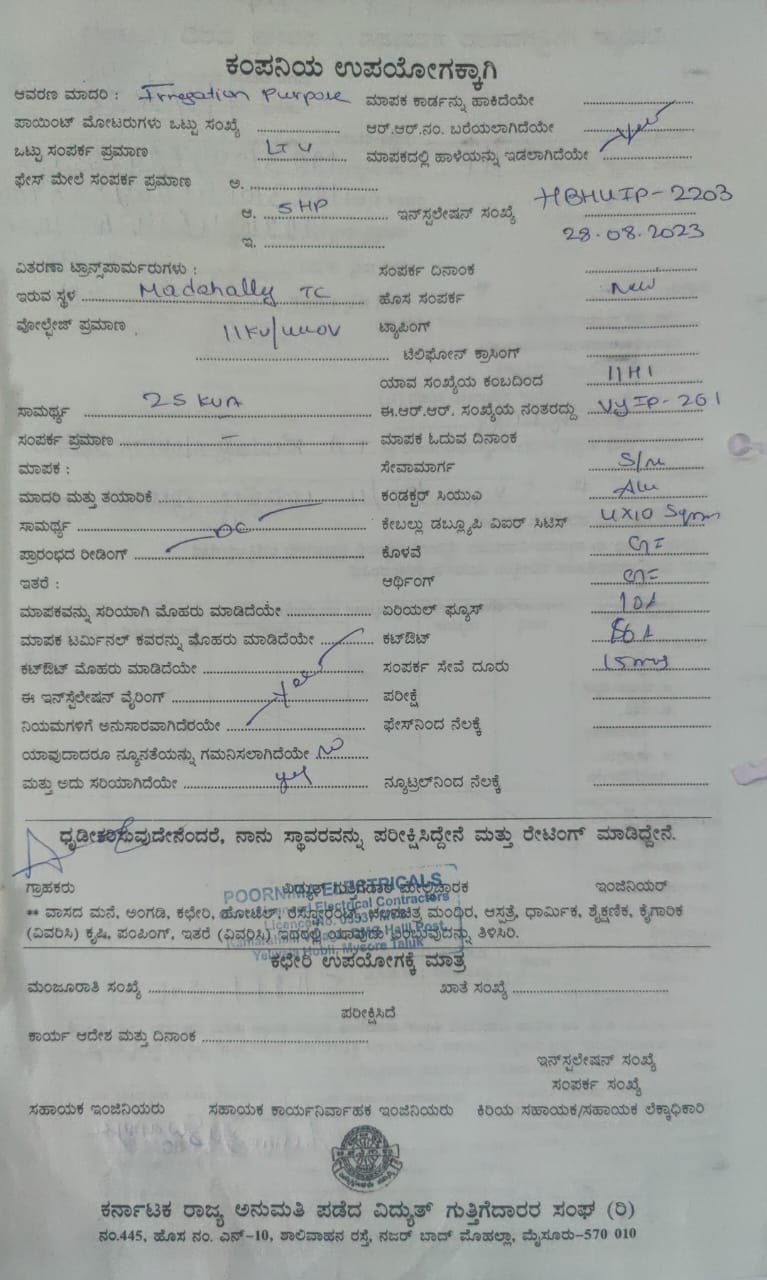 ಕಂಪನಿಯ ಉಪಯೋಗಕ್ಕಾಗಿ
ಆವರಣ ಮಾದರಿ : Irregation Purpose ಮಾಪಕ ಕಾರ್ಡನ್ನು ಹಾಕಿದೆಯೇ
ಪಾಯಿಂಟ್ ಮೋಟರುಗಳು ಒಟ್ಟು ಸಂಖ್ಯೆ ಆರ್.ಆರ್.ನಂ. ಬರೆಯಲಾಗಿದೆಯೇ yes
ಒಟ್ಟು ಸಂಪರ್ಕ ಪ್ರಮಾಣ LTV ಮಾಪಕದಲ್ಲಿ ಹಾಳೆಯನ್ನು ಇಡಲಾಗಿದೆಯೇ
ಫೇಸ್ ಮೇಲೆ ಸಂಪರ್ಕ ಪ್ರಮಾಣ ಅ.
ಆ. 5HP ಇನ್‌ಸ್ಪಲೇಷನ್ ಸಂಖ್ಯೆ HBHUIP-2203
ಇ. 28.08.2023
ವಿತರಣಾ ಟ್ರಾನ್ಸ್‌ಪಾರ್ಮರುಗಳು : ಸಂಪರ್ಕ ದಿನಾಂಕ
ಇರುವ ಸ್ಥಳ Madahally TC ಹೊಸ ಸಂಪರ್ಕ New
ವೋಲ್ಟೇಜ್ ಪ್ರಮಾಣ 11KV/440V ಟ್ಯಾಪಿಂಗ್
ಟೆಲಿಫೋನ್ ಕ್ರಾಸಿಂಗ್
ಯಾವ ಸಂಖ್ಯೆಯ ಕಂಬದಿಂದ 11H1
ಸಾಮರ್ಥ್ಯ 25 KVA ಈ.ಆರ್.ಆರ್. ಸಂಖ್ಯೆಯ ನಂತರದ್ದು VyIP-261
ಸಂಪರ್ಕ ಪ್ರಮಾಣ - ಮಾಪಕ ಓದುವ ದಿನಾಂಕ
ಮಾಪಕ : ಸೇವಾಮಾರ್ಗ S/m
ಮಾದರಿ ಮತ್ತು ತಯಾರಿಕೆ ಕಂಡಕ್ಟರ್ ಸಿಯುವಿ Alu
ಸಾಮರ್ಥ್ಯ DC ಕೇಬಲ್ಲು ಡಬ್ಲ್ಯೂಪಿ ವಿಐರ್ ಸಿಟಿಸ್ 4X10 Sqmm
ಪ್ರಾರಂಭದ ರೀಡಿಂಗ್ ಕೊಳವೆ GI
ಇತರೆ : ಆರ್ಥಿಂಗ್ GI
ಮಾಪಕವನ್ನು ಸರಿಯಾಗಿ ಮೊಹರು ಮಾಡಿದೆಯೇ ಏರಿಯಲ್ ಫ್ಯೂಸ್ 10A
ಮಾಪಕ ಟರ್ಮಿನಲ್ ಕವರನ್ನು ಮೊಹರು ಮಾಡಿದೆಯೇ ಕಟ್‌ಔಟ್
ಕಟ್‌ಔಟ್ ಮೊಹರು ಮಾಡಿದೆಯೇ ಸಂಪರ್ಕ ಸೇವೆ ದೂರು
ಈ ಇನ್‌ಸ್ಟೆಲೇಷನ್ ವೈರಿಂಗ್ yes ಪರೀಕ್ಷೆ
ನಿಯಮಗಳಿಗೆ ಅನುಸಾರವಾಗಿದೆರಯೇ ಫೇಸ್‌ನಿಂದ ನೆಲಕ್ಕೆ
ಯಾವುದಾದರೂ ನ್ಯೂನತೆಯನ್ನು ಗಮನಿಸಲಾಗಿದೆಯೇ no
ಮತ್ತು ಅದು ಸರಿಯಾಗಿದೆಯೇ yes ನ್ಯೂಟ್ರಲ್‌ನಿಂದ ನೆಲಕ್ಕೆ
ಧೃಡೀಕರಿಸುವುದೇನೆಂದರೆ, ನಾನು ಸ್ಥಾವರವನ್ನು ಪರೀಕ್ಷಿಸಿದ್ದೇನೆ ಮತ್ತು ರೇಟಿಂಗ್ ಮಾಡಿದ್ದೇನೆ.
ಗ್ರಾಹಕರು ವಿದ್ಯುತ್ ಗುತ್ತಿಗೆದಾರ ಮೇಲ್ವಿಚಾರಕ ಇಂಜಿನಿಯರ್
POORNIMA ELECTRICALS
Electrical Contractors
** ವಾಸದ ಮನೆ, ಅಂಗಡಿ, ಕಛೇರಿ, ಹೋಟೆಲ್, ರೆಸ್ಟೋರೆಂಟ್, ಚಲನಚಿತ್ರ ಮಂಥಿರ, ಆಸ್ಪತ್ರೆ, ಧಾರ್ಮಿಕ, ಶೈಕ್ಷಣಿಕ, ಕೈಗಾರಿಕ
(ವಿವರಿಸಿ) ಕೃಷಿ, ಪಂಪಿಂಗ್, ಇತರೆ (ವಿವರಿಸಿ) ಇದರಲ್ಲಿ ಯಾವುದು ಎಂಬುವುದನ್ನು ತಿಳಿಸಿರಿ.
Halli Post
Yelwala Hobli, Mysore Taluk
ಕಛೇರಿ ಉಪಯೋಗಕ್ಕೆ ಮಾತ್ರ
ಮಂಜೂರಾತಿ ಸಂಖ್ಯೆ ಖಾತೆ ಸಂಖ್ಯೆ
ಪರೀಕ್ಷಿಸಿದೆ
ಕಾರ್ಯ ಆದೇಶ ಮತ್ತು ದಿನಾಂಕ
ಇನ್‌ಸ್ಪಲೇಷನ್ ಸಂಖ್ಯೆ
ಸಂಪರ್ಕ ಸಂಖ್ಯೆ
ಸಹಾಯಕ ಇಂಜಿನಿಯರು ಸಹಾಯಕ ಕಾರ್ಯನಿರ್ವಾಹಕ ಇಂಜಿನಿಯರು ಕಿರಿಯ ಸಹಾಯಕ/ಸಹಾಯಕ ಲೆಕ್ಕಾಧಿಕಾರಿ
ಕರ್ನಾಟಕ ರಾಜ್ಯ ಅನುಮತಿ ಪಡೆದ ವಿದ್ಯುತ್ ಗುತ್ತಿಗೆದಾರರ ಸಂಘ (ರಿ)
ನಂ.445, ಹೊಸ ನಂ. ಎನ್-10, ಶಾಲಿವಾಹನ ರಸ್ತೆ, ನಜರ್ ಬಾದ್ ಮೊಹಲ್ಲಾ, ಮೈಸೂರು-570 010